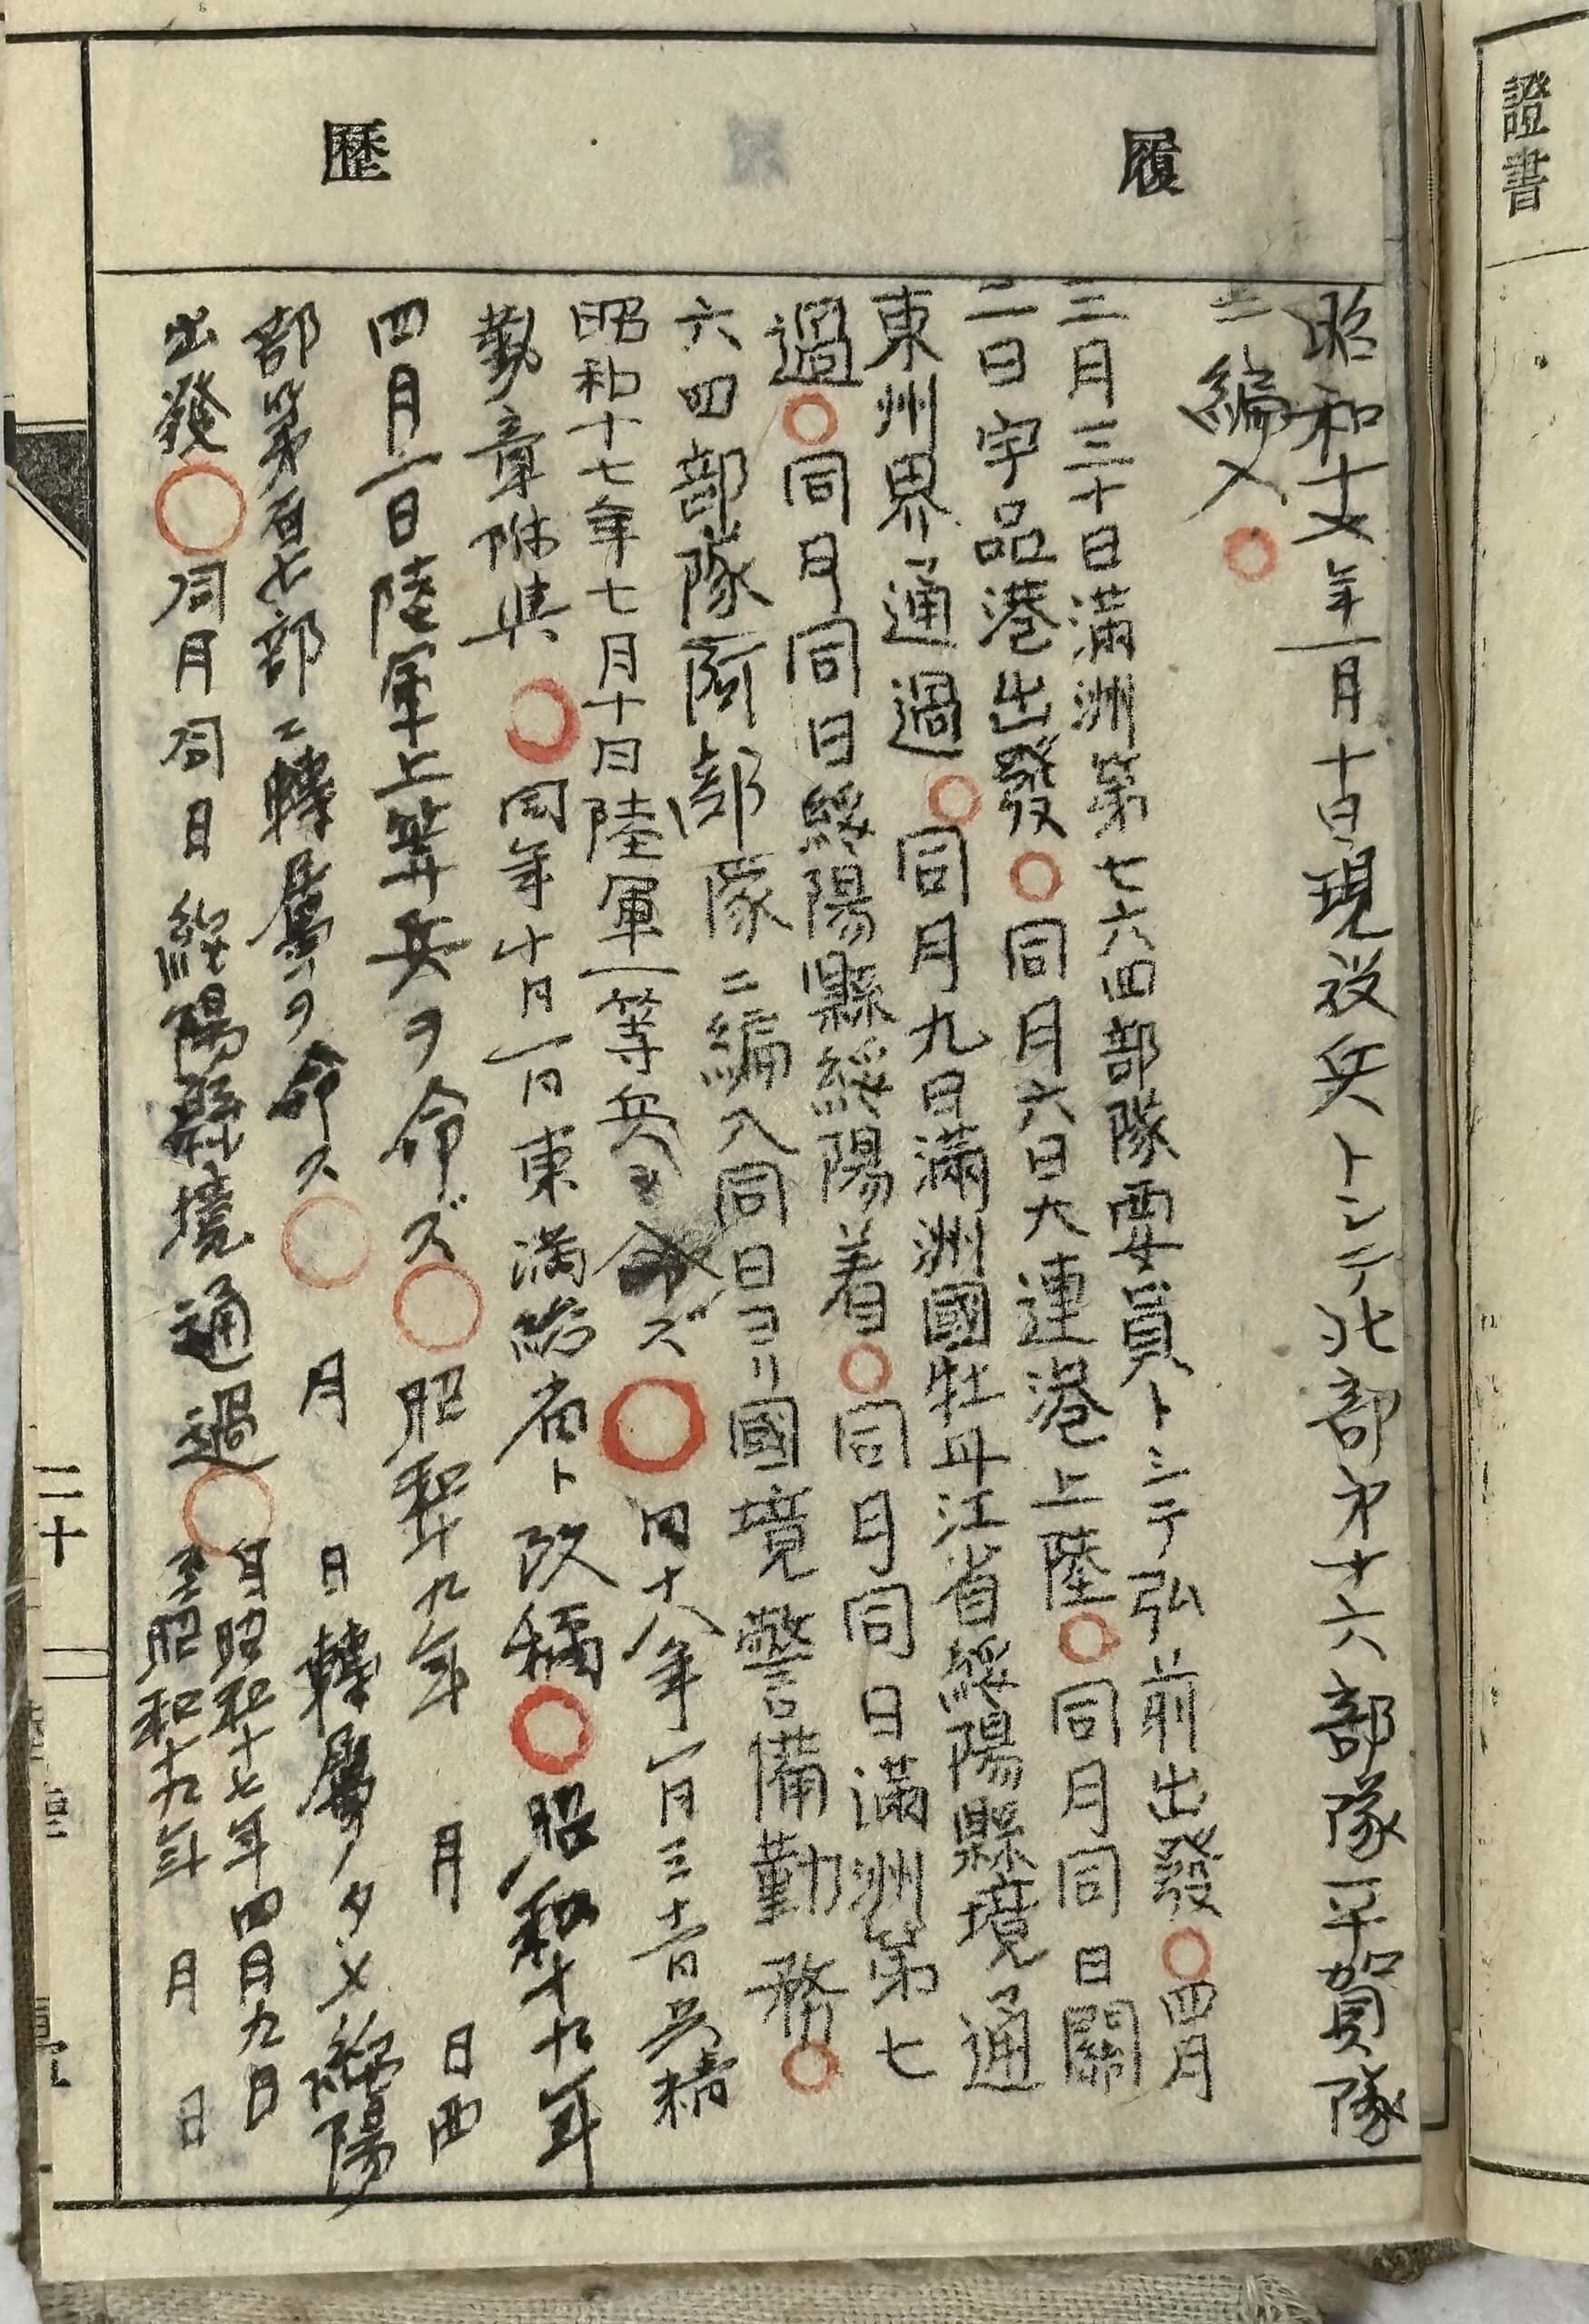 證書
履
歴
昭和十七年一月十日現役兵トシテ北部第十六部隊平賀隊
ニ編入〇
三月三十日満洲第七六四部隊要員トシテ弘前出發〇四月
二日宇品港出發〇同月六日大連港上陸〇同月同日關
東州界通過〇同月九日滿洲國牡丹江省綏陽縣境通
過〇同月同日綏陽縣綏陽着〇同月同日滿洲第七
六四部隊阿部隊ニ編入同日ヨリ國境警備勤務〇
昭和十七年七月十日陸軍一等兵ヲ命ズ〇同十八年一月三十一日兵精
勤章附與〇同年十月一日東満総省ト改稱〇昭和十九年
四月一日陸軍上等兵ヲ命ズ〇昭和十九年 月 日西
部第百七部ニ轉屬ヲ命ス〇 月 日轉屬ノタメ綏陽
出發〇同月同日綏陽縣境通過〇
自昭和十七年四月九日
至昭和十九年 月 日
二十